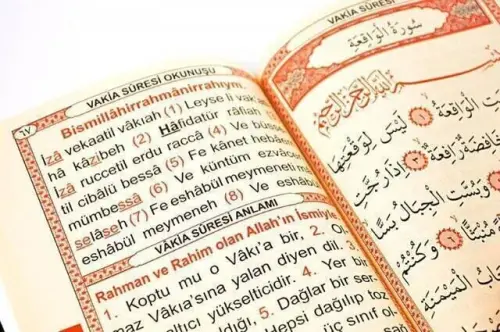 ٦٧
VAKİA SÛRESİ OKUNUŞU
Bismillâhirrahmânirrahıym.
İzâ vekaatil vâkıah (1) Leyse li vak
hâ kâzibeh (2) Hâfidatür râfiah
İzâ ruccetil erdu raccâ (4) Ve büsse
til cibâlü bessâ (5) Fe kânet hebâe
mümbessâ (6) Ve küntüm ezvâce
selâseh (7) Fe eshâbül meymeneti m
eshâbül meymeneh (8) Ve eshâbü
VAKİA SÛRESİ ANLAMI
Rahman ve Rahim olan Allah'ın ismiyle
1. Koptu mu o Vâkı'a bir, 2. O
maz Vâkıa'sına yalan diyen dil.
altıcı yükselticidir. 4. Yer bir
5. Dağlar bir ser-
Hepsi dağılıp toz
üç sınıf ol
VAKİA SÛRESİ
سُورَةُ الْوَاقِعَةِ
بِسْمِ اللّٰهِ الرَّحْمٰنِ الرَّحِيمِ
الْوَاقِعَةُ ١ لَيْسَ لِوَقْعَتِهَا
رَافِعَةٌ ٣ اِذَا رُجَّتِ
وَبُسَّتِ الْجِبَالُ بَسًّا
مُنْبَثًّا ٦ وَكُنْتُمْ
الْمَيْمَنَةِ